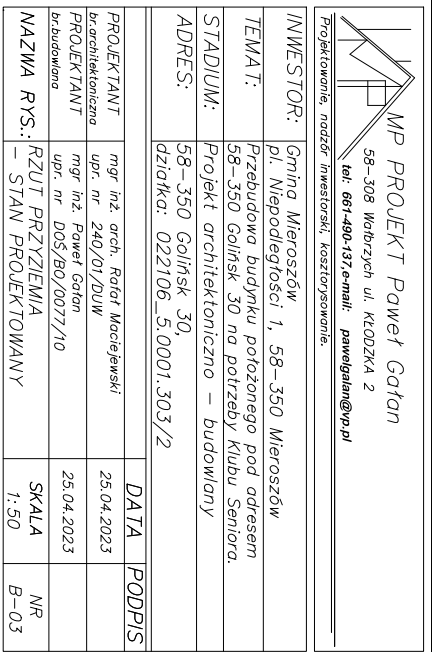 MP PROJEKT Paweł Gałan
58-308 Wałbrzych ul. KŁODZKA 2
tel: 661-490-137,e-mail: pawelgalan@vp.pl
Projektowanie, nadzór inwestorski, kosztorysowanie.
INWESTOR: Gmina Mieroszów
pl. Niepodległości 1, 58-350 Mieroszów
TEMAT: Przebudowa budynku położonego pod adresem
58-350 Golińsk 30 na potrzeby Klubu Seniora.
STADIUM: Projekt architektoniczno - budowlany
ADRES: 58-350 Golińsk 30,
działka: 022106_5.0001.303/2
DATA PODPIS
PROJEKTANT mgr inż. arch. Rafał Maciejewski
br.architektoniczna upr. nr 240/01/DUW 25.04.2023
PROJEKTANT mgr inż. Paweł Gałan
br.budowlana upr. nr DOŚ/BO/0077/10 25.04.2023
NAZWA RYS.: RZUT PRZYZIEMIA SKALA NR
- STAN PROJEKTOWANY 1:50 B-03